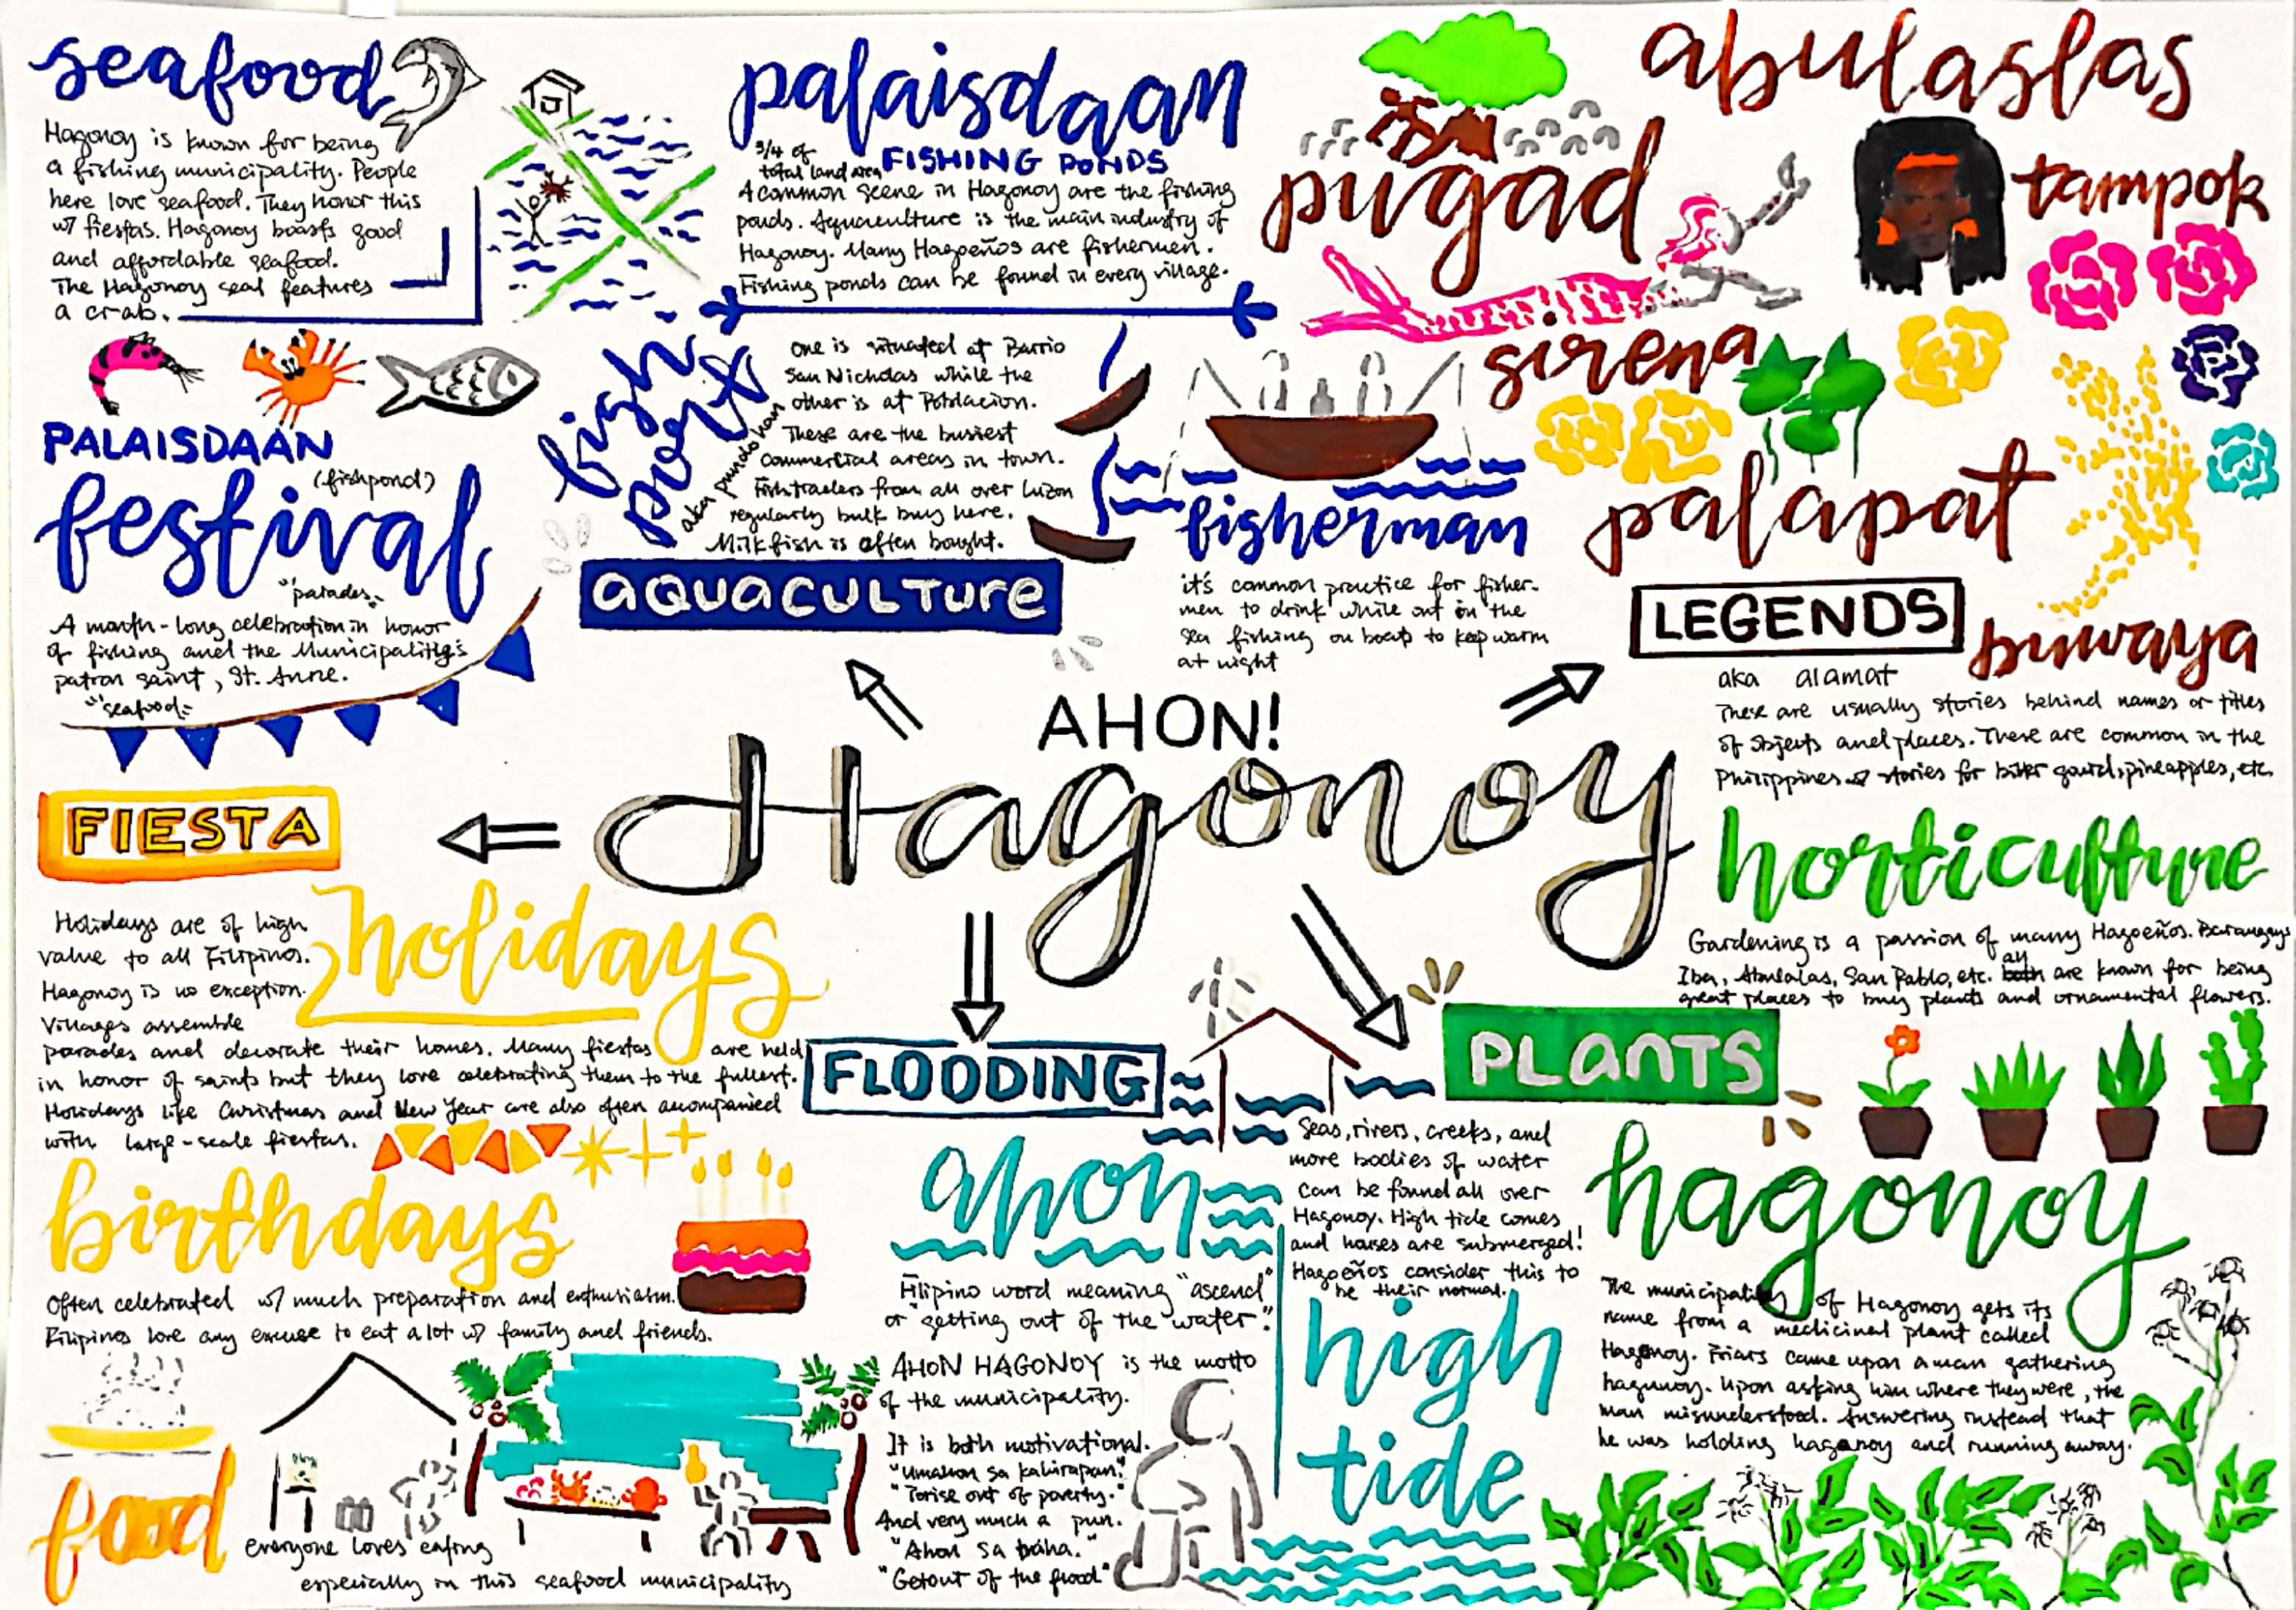 seafood
Hagonoy is known for being
a fishing municipality. People
here love seafood. They honor this
w/ fiestas. Hagonoy boasts good
and affordable seafood.
The Hagonoy seal features
a crab.
PALAISDAAN
(fishpond)
festival
"parades"
A month-long celebration in honor
of fishing and the Municipality's
patron saint, St. Anne.
"seafood"
palaisdaan
3/4 of
total land area
FISHING PONDS
A common scene in Hagonoy are the fishing
ponds. Aquaculture is the main industry of
Hagonoy. Many Hagoeños are fishermen.
Fishing ponds can be found in every village.
fish
port
aka punduhan
One is situated at Barrio
San Nicholas while the
other is at Poblacion.
These are the busiest
commercial areas in town.
Fishtraders from all over Luzon
regularly bulk buy here.
Milkfish is often bought.
AQUACULTURE
fisherman
it's common practice for fisher-
men to drink while out on the
sea fishing on boats to keep warm
at night
abulaslas
pugad
tampok
sirena
palapat
LEGENDS
buwaya
aka alamat
These are usually stories behind names or titles
of objects and places. These are common in the
Philippines w/ stories for bitter gourds, pineapples, etc.
AHON!
Hagonoy
FIESTA
holidays
Holidays are of high
value to all Filipinos.
Hagonoy is no exception.
Villages assemble
parades and decorate their homes. Many fiestas are held
in honor of saints but they love celebrating them to the fullest.
Holidays like Christmas and New Year are also often acompanied
with large-scale fiestas.
birthdays
Often celebrated w/ much preparation and enthusiasm.
Filipinos love any excuse to eat a lot w/ family and friends.
food
everyone loves eating
especially in this seafood municipality
FLOODING
ahon
Filipino word meaning "ascend"
or "getting out of the water."
AHON HAGONOY is the motto
of the municipality.
It is both motivational.
"Umahon sa kahirapan."
"To rise out of poverty."
And very much a pun.
"Ahon sa baha."
"Get out of the flood"
Seas, rivers, creeks, and
more bodies of water
can be found all over
Hagonoy. High tide comes
and houses are submerged!
Hagoeños consider this to
be their normal.
high
tide
horticulture
Gardening is a passion of many Hagoeños. Barangays
Iba, Abulalas, San Pablo, etc. all are known for being
great places to buy plants and ornamental flowers.
PLANTS
hagonoy
The municipality of Hagonoy gets its
name from a medicinal plant called
Hagonoy. Friars came upon a man gathering
hagunoy. Upon asking him where they were, the
man misunderstood. Answering instead that
he was holding hagonoy and running away.